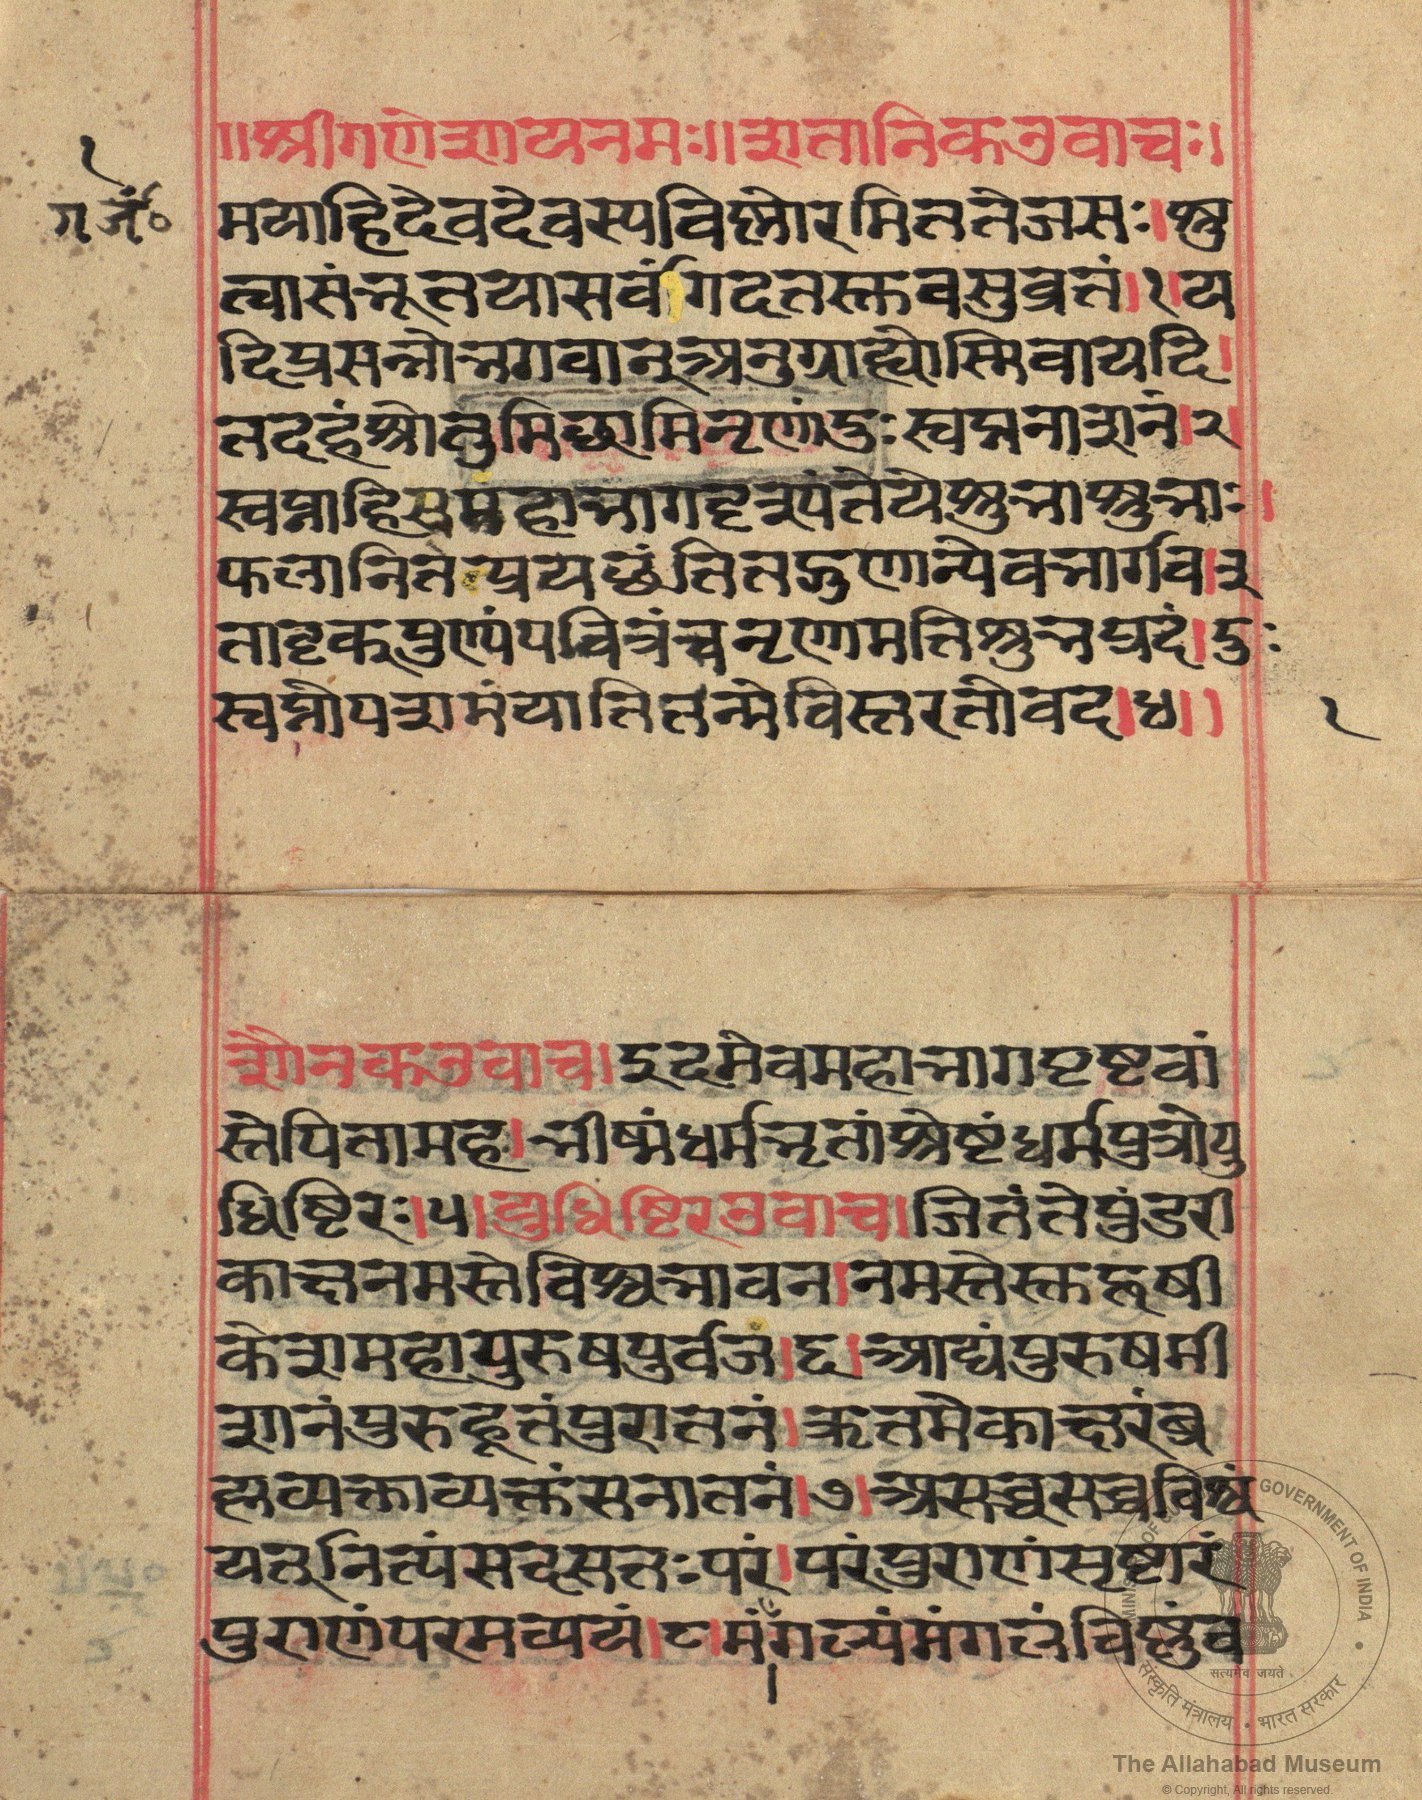 ॥श्रीगणेशायनमः॥शतानिकउवाचः।
१
ग॰ जें॰
मयाहिदेवदेवस्यविष्णोरमिततेजसः।श्रु
त्वासंभूतयासर्वागदतस्तवसुव्रतं।१।य
दिप्रसन्नोभगवान्अनुग्राह्योस्मिवायदि।
तदहंश्रोतुमिछामिनृणांदुःस्वप्ननाशनं।२।
स्वप्नाहिसुमहाभागदृश्यंतेयेशुभाशुभाः।
फलानितेप्रयछंतितद्गुणान्येवभार्गव।३
तादृक्पुण्यंपवित्रंचनृणामतिशुभप्रदं।दुः
स्वप्नोपशमंयातितन्मेविस्तरतोवद।४।।
१
शौनकउवाच।इदमेवमहाभागपृष्टवां
स्तेपितामह।भीष्मंधर्मभृतांश्रेष्टंधर्मपुत्रोयु
धिष्टिरः।५।युधिष्टिरउवाच।जितंतेपुंडरी
काक्षनमस्तेविश्वभावन।नमस्तेस्तुहृषी
केशमहापुरुषपुर्वजं।६।आद्यंपुरुषमी
शानंपुरुहूतंपुरातनं।ऋतमेकाक्षरंब्र
ह्मव्यक्ताव्यक्तंसनातनं।७।असच्चसच्चविश्वं
यत्नित्यंसदसतःपरं।परंपुराणंसृष्टारं
पुराणंपरमव्ययं।८।मंगल्यंमंगलंविष्णुंव
MINISTRY OF CULTURE GOVERNMENT OF INDIA
सत्यमेव जयते
संस्कृति मंत्रालय • भारत सरकार
The Allahabad Museum
© Copyright, All rights reserved.